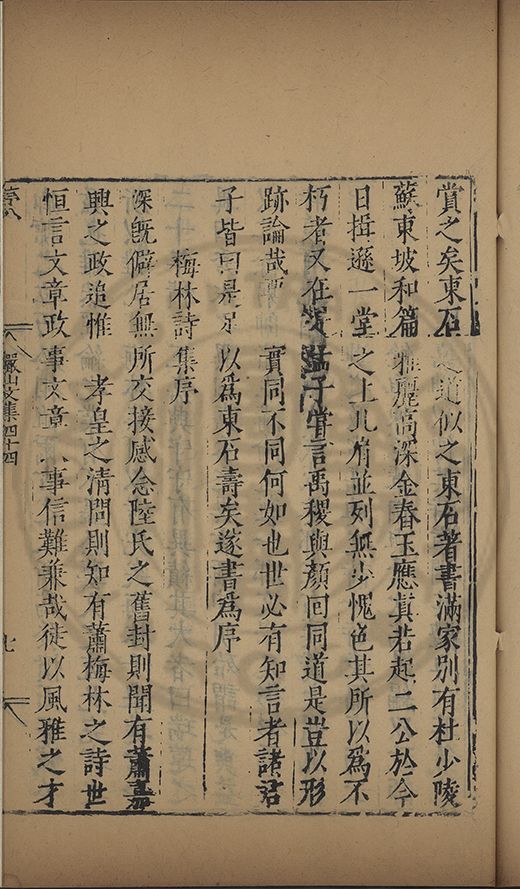 賞之矣東石之道似之東石著書滿家別有杜少陵
蘇東坡和篇雅麗高深金春玉應真若起二公於今
日揖遜一堂之上几肩並列無少愧色其所以為不
朽者又在孟子嘗言禹稷與顏回同道是豈以形
跡論哉實同不同何如也世必有知言者諸君
子皆曰是足以為東石壽矣遂書為序
梅林詩集序
深旣僻居無所交接感念陸氏之舊封則聞有蕭
興之政追惟孝皇之清問則知有蕭梅林之詩世
恒言文章政事文章事信難兼哉徒以風雅之才
儼山文集四十四
七